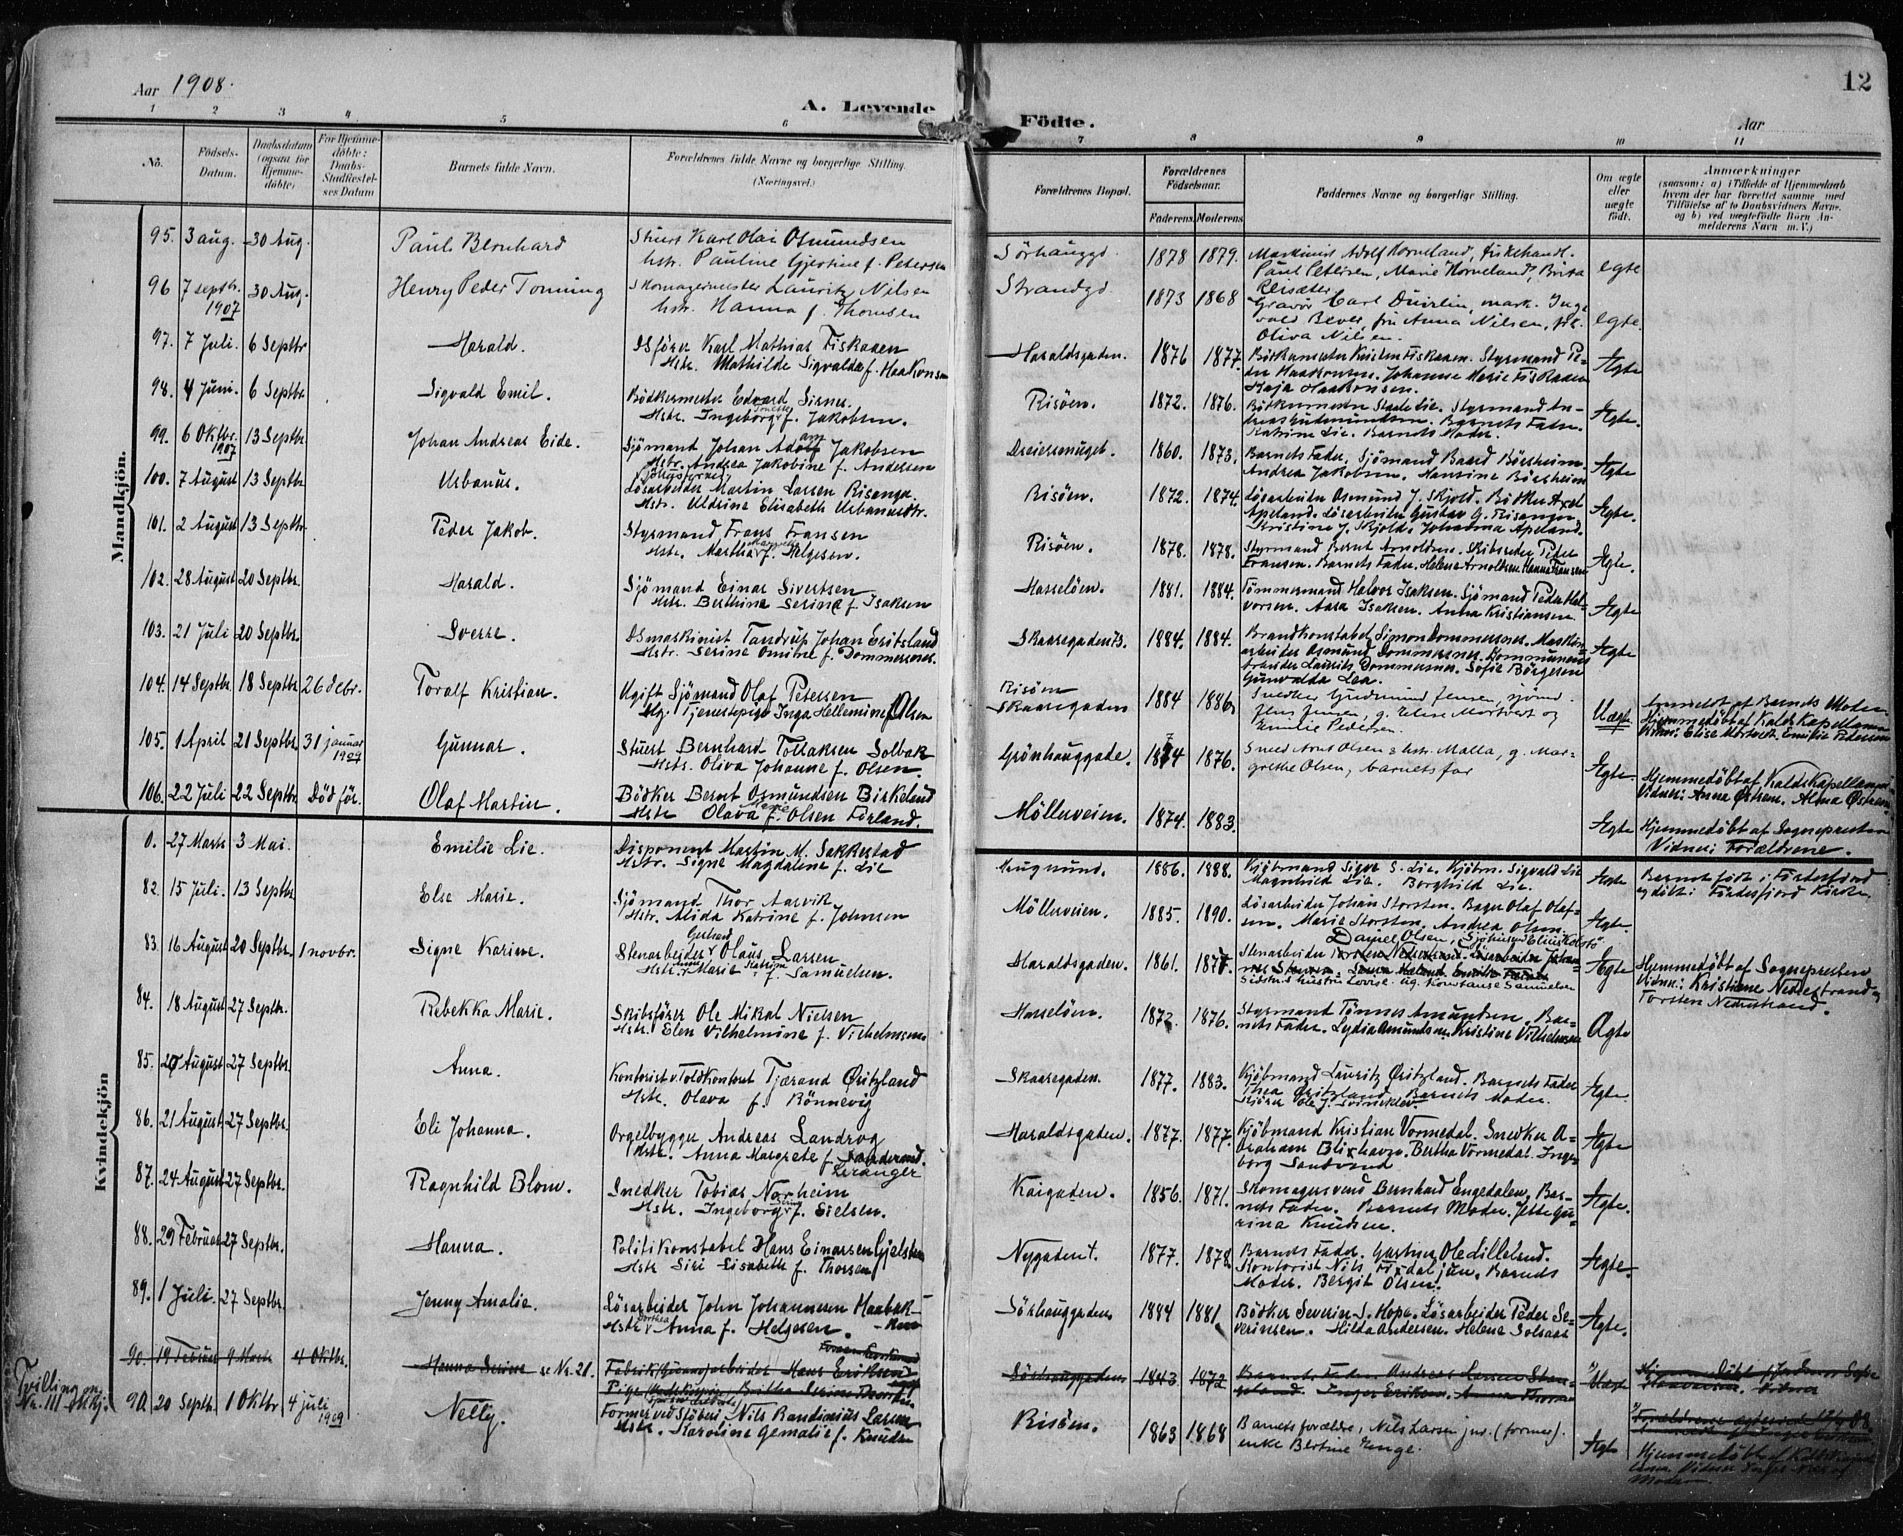 Aar 1908.
A. Levende Födte.
12
Aar
1 2 3 4 5 6 7 8 9 10 11
No.
Födsels-Datum.
Daabsdatum (ogsaa for Hjemme-döbte)
For Hjemme-döbte: Daabs-Stadfæstel-ses Datum
Barnets fulde Navn.
Forældrenes fulde Navne og borgerlige Stilling.
(Næringsvei.)
Forældrenes Bopæl.
Forældrenes Födselsaar.
Faderens Moderens
Faddernes Navne og borgerlige Stilling.
Om ægte eller uægte födt.
Anmærkninger
(saasom: a) i Tilfælde af Hjemmedaab
hvem der har forrettet samme med
Tilföielse af to Daabsvidners Navne.
og b) ved uægtefödte Börn An-
melderens Navn m.V.)
Mandkjön.
95. 3 aug. 30 Aug. Paul Bernhard
Stuert Karl Olai Osmundsen
hstr. Pauline Gjertine f. Petersen
Sörhauggd. 1878 1879. Maskinist Adolf Horneland, fiskehandl.
Paul Petersen, Marie Horneland, Brita
egte
96 7 septbr. 1907 30 Aug. Henry Peder Tonning
Skomagermester Lauritz Nilsen
hstr. Hanna f. Thomsen
Strandgd 1873 1868 Gravør Carl
Anna Nilsen,
Oliva Nilsen.
egte.
97. 7 Juli. 6 Septbr Harald.
Dsförer Karl Mathias Fiskaaen
Hstr. Mathilde Sigvalda f. Haakonsen
Haraldsgaden. 1876 1877. Bödkermester Kristen Fiskaaen. Styrmand Pe-
der Haakonsen. Johanne Marie Fiskaaen
Maja Haakonsen.
Ægte
98. 4 Juni. 6 Septbr Sigvald Emil.
Bödkermester Edvard Sirnes.
Hstr. Ingeborg f. Jakobsen.
Risöen. 1872. 1876. Bödkermester Lie. Styrmand An-
dreas Gudmundsen. Barnets Fader.
Katrine Lie. Barnets Moder.
Ægte.
99. 6 Oktbr. 1907 13 Septbr Johan Andreas Eide.
Sjömand Johan Adolf Jakobsen
Hstr. Andrea Jakobine f. Andersen
Dreiersmuget. 1860. 1873. Barnets Fader, Sjömand Baard Börsheim.
Andrea Jakobsen. Hansine Börsheim
Ægte
100. 7 August 13 Septbr Urbanus.
Lösarbeider Martin Larsen Risanga.
Hstr. Uldrine Elisabeth Urbanusdtr.
Risöen. 1872. 1874. Lösarbeider Osmund J. Skjold. Bödker Axel
Apeland. Lösarbeider Gustav G. Risanger
Kristine J. Skjold. Johanna Apeland.
Ægte.
101. 2 August 13 Septbr. Peder Jakob.
Styrmand Frans Fransen
Hstr. Martha f. Helgesen.
Risöen. 1878. 1878. Styrmand Bernt Arnoldsen. Skibsreder Peder
Fransen. Barnets Fader. Helene Arnoldsen. Hanna Fransen
Ægte.
102. 28 August 20 Septbr. Harald.
Sjömand Einar Sivertsen
Hstr. Berthine Serine f. Isaksen
Hasselöen. 1881. 1884. Tömmermand Halvor Isaksen. Sjömand Peder Hal-
vorsen. Aasa Isaksen. Anna Kristiansen.
Ægte
103. 21 Juli 20 Septbr. Sverre.
Dsmaskinist Tandrup Johan Eritsland
Hstr. Serine Omine f. Dommersnes.
Skaaregaden 1884. 1884. Brandkonstabel Simon Dommersnes. Maskin-
arbeider Osmund Dommersnes. Kommunens
arbeider Laurits Dommersnes. Sofie Börgesen
Gunvalda Lea.
Ægte
104. 14 Septbr. 18 Septbr 26 debr. Toralf Kristian.
Ugift Sjömand Olaf Petersen
Ug. Tjenestepige Inga Hellemine Olsen
Risöen
Skaaregaden 1884 1886. Snedker Gudmund Jensen, sjömd.
Jens Jensen, g. Elise Mortveit og
Emilie Pedersen.
Uægte
Anmeldt af Barnets Moder
Hjemmedöbt af Kalds Kapellanen
Vidner: Elise Mortveit Emilie Pedersen
105. 1 April 21 Septbr. 31 januar 1907 Gunnar.
Stuert Bernhart Tollaksen Solbak
Hstr. Oliva Johanne f. Olsen.
Grönhauggade. 1874 1876. Sned. Arne Olsen & hstr. Malla, g. Mar-
grethe Olsen, barnets far
Ægte.
Hjemmedöbt af Kaldskapellanen
Vidner: Anna Östrem. Alma Östrem.
106. 22 Juli 22 Septbr. Död för. Olaf Martin.
Bödker Bernt Osmundsen Birkeland
Hstr Olava Marie f. Olsen Förland.
Möllerveien. 1874. 1883.
Ægte Hjemmedöbt af Sognepresten
Vidner: Forældrene.
Kvindekjön
0. 27 Marts 3 Mai. Emilie Lie.
Disponent Martin M. Sakkestad
Hstr. Signe Magdalene f. Lie
1886. 1888. Kjöbmand Sigv. S. Lie. Kjöbm. Sigvald Lie
Magnhild Lie. Borghild Lie.
Ægte Barnet födt i Förresfjord
og döbt i Förresfjord Kirke.
82. 15 Juli. 13 Septbr. Else Marie.
Sjömand Thor Aarvik
Hstr. Alida Katrine f. Johnsen
Möllerveien. 1885. 1890. Lösarbeider Johan Storsten. Bager Olaf Olaf-
sen. Marie Storsten. Andrea Olsen.
Ægte.
83. 16 August 20 Septbr. 1 novbr. Signe Karine.
Gerhard
Stenarbeider Olaus Larsen
Hstr. Anne Marie Katrine f. Samuelsen.
Haraldsgaden. 1861. 1877. Daniel Olsen,
Stenarbeider Torsten Nedrestrand.
Konstanse Samuelsen
Ægte Hjemmedöbt af Sognepresten
Vidner: Kristiane Nedrestrand og
Torsten Nedrestrand.
84. 18 August 27 Septbr. Rebekka Marie.
Skibsförer Ole Mikal Nielsen
Hstr. Elen Vilhelmine f. Vilhelmsen
Hasselöen. 1872. 1876. Styrmand Tönnes Amundsen. Bar-
nets Fader. Lydia Amundsen. Kristine Vilhelmsen
Ægte
85. 20 August 27 Septbr. Anna.
Kontorist v. Toldkontoret Tjærand Øritzland
Hstr. Olava f. Rönnevig
Skaaregaden. 1877. 1883. Kjöbmand Lauritz Øritzland. Barnets Fader
Thea Øritzland. Barnets Moder.
Ægte.
86. 21 August 27 Septbr. Eli Johanna.
Orgelbygger Andreas Landrog
Hstr. Anna Margrete f. Sandersnd.
Leranger
Haraldsgaden. 1877. 1877. Kjöbmand Kristian Vormedal. Snedker A-
braham Blixhavn. Bertha Vormedal. Inge-
borg Sandvand
Ægte
87. 24 August 27 Septbr. Ragnhild Blom.
Snedker Tobias Norheim
Hstr. Ingeborg f. Eielsen.
Kaigaden. 1856. 1871. Skomagersvend Bernhard Engedalen. Bar-
nets Fader. Barnets Moder. Jette Gu-
rina Knudsen.
Ægte.
88. 29 Februar 27 Septbr. Hanna.
Politikonstabel Hans Einarsen Gjelsten
Hstr Siri Lisabeth f. Thorsen
Nygaden. 1877. 1878. Barnets Fader. Gartner Ole Lillelund.
Kontorist Nils Fixdal jun. Barnets
Moder. Bergit Olsen.
Ægte.
89. 1 Juli. 27 Septbr. Jenny Amalie.
Lösarbeider John Johannesen Haabek-
Hstr. Dorthea Anna f. Helgesen.
Sörhauggaden 1884 1881 Bödker Severin S. Hope. Lösarbeider Peder Se-
verinsen. Hilda Andersen. Helene Solsaas
Ægte.
90. 19 Februar 9 Marts 4 Oktbr. Hanna Serine se Nr. 21.
Fabrik(Guano)arbeider Hans Eriksen
Sörhauggaden 1843 1872 Barnets Fader. Andreas Larsen
Inger Eriksen. Anna
Uægte
Tvilling m. Nr. 111 Mkj.
90. 20 Septbr. 1 Oktbr 4 juli 1909 Nelly.
Former ved Stöberi Nils Bandinius Larsen
Hstr. Karoline Gemalie f. Knudsen
Risöen. 1863 1868 Barnets forældre, Nils Larsen jnr. (former).
enke Bertine Enge.
Ægte
Hjemmedöbt af